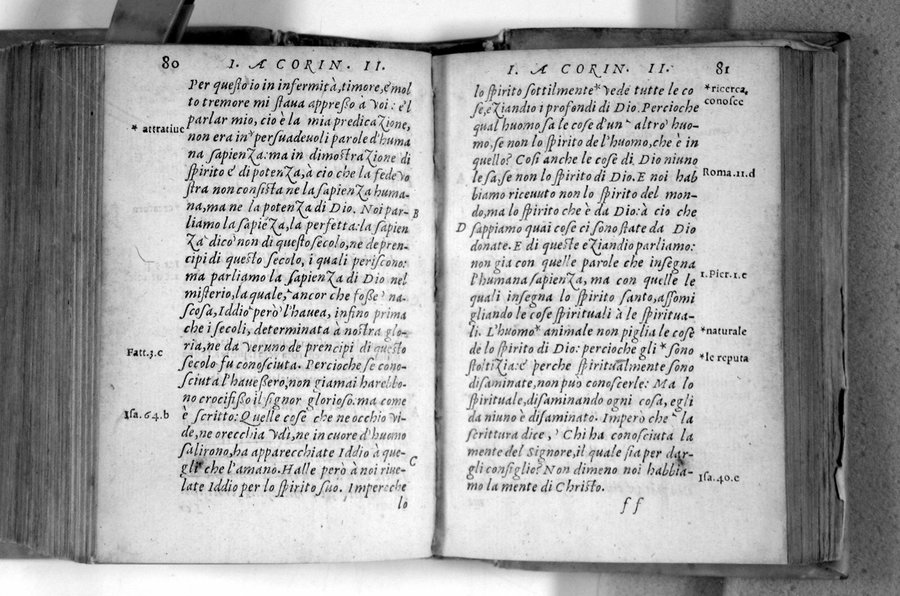 80 I. A CORIN. II.
Per questo io in infermità, timore, e mol
to tremore mi staua appresso à voi: e'l
parlar mio, cio è la mia predicazione,
* attratiue
non era in * persuadeuoli parole d'huma
na sapienza: ma in dimostrazione di
spirito e di potenza, à cio che la fede vo
stra non consista ne la sapienza huma-
na, ma ne la potenza di Dio. Noi par-
B
liamo la sapiēza, la perfetta: la sapien
za dico non di questo secolo, ne de pren-
cipi di questo secolo, i quali periscono:
ma parliamo la sapienza di Dio nel
misterio, la quale, ancor che fosse na-
scosa, Iddio però l'hauea, infino prima
che i secoli, determinata à nostra glo-
ria, ne da veruno de prencipi di questo
Fatt.3.c
secolo fu conosciuta. Percioche se cono-
sciuta l'hauessero, non giamai harebbo-
no crocifisso il signor glorioso. ma come
Isa.64.b
è scritto: Quelle cose che ne occhio vi-
de, ne orecchia vdì, ne in cuore d'huomo
salirono, ha apparecchiate Iddio à que-
gli che l'amano. Halle però à noi riue-
C
late Iddio per lo spirito suo. Imperoche
lo
I. A CORIN. II. 81
lo spirito sottilmente * vede tutte le co
* ricerca,
conosce
se, eziandio i profondi di Dio. Percioche
qual huomo sa le cose d'un altro huo-
mo, se non lo spirito de l'huomo, che è in
quello? Così anche le cose di Dio niuno
le sa, se non lo spirito di Dio. E noi hab
Roma.11.d
biamo riceuuto non lo spirito del mon-
do, ma lo spirito che è da Dio: à cio che
D
sappiamo quai cose ci sono state da Dio
donate. E di queste eziandio parliamo:
non gia con quelle parole che insegna
l'humana sapienza, ma con quelle le
1.Pietr.1.e
quali insegna lo spirito santo, assomi
gliando le cose spirituali à le spiritua-
li. L'huomo * animale non piglia le cose
*naturale
de lo spirito di Dio: percioche gli * sono
*le reputa
stoltizia: e perche spiritualmente sono
disaminate, non può conoscerle: Ma lo
spirituale, disaminando ogni cosa, egli
da niuno è disaminato. Imperò che la
scrittura dice, Chi ha conosciuta la
mente del Signore, il quale sia per dar-
gli consiglio? Non dimeno noi habbia-
Isa.40.c
mo la mente di Christo.
ff